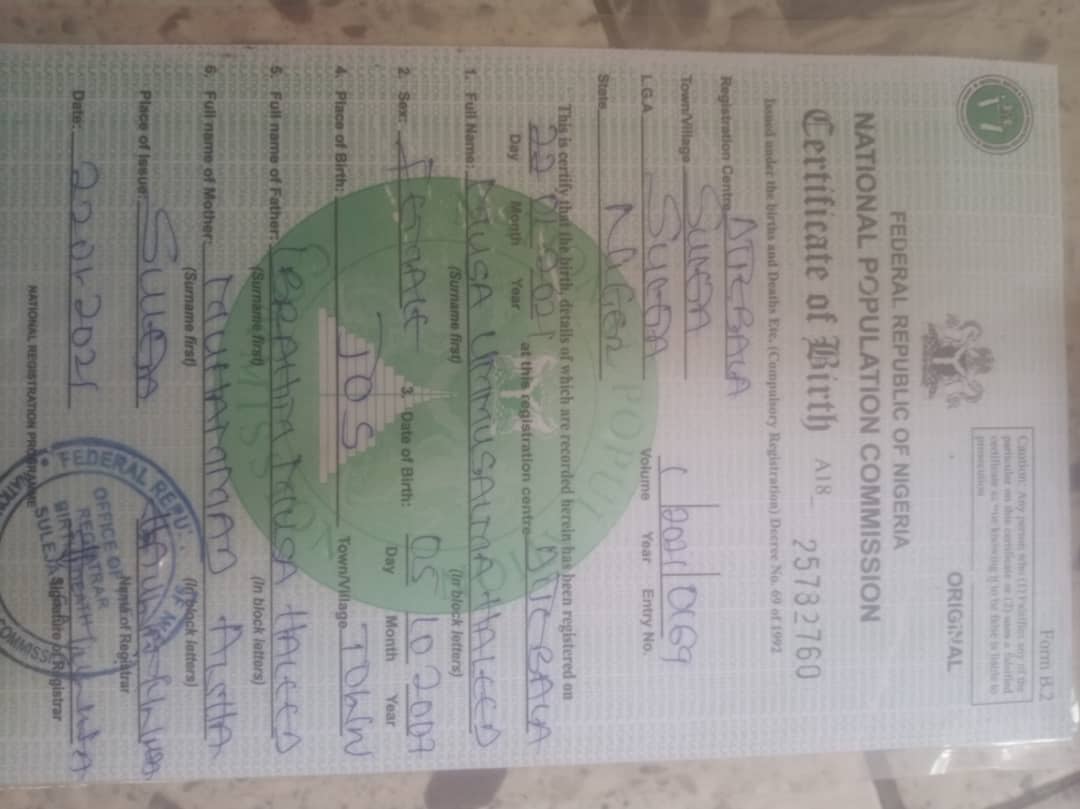 Form B.2
Caution: Any person who (1) Falsifies any of the
particular on this certificate or (2) uses a falsified
certificate as true knowing it to be false is liable to
prosecution
ORIGINAL
FEDERAL REPUBLIC OF NIGERIA
NATIONAL POPULATION COMMISSION
Certificate of Birth A18 25782760
Issued under the births and Deaths Etc. (Compulsory Registration) Decree No. 69 of 1992
Registration Centre
Town/Village SULEJA
L.G.A SULEJA Volume Year Entry No.
1 2021 0669
State NIGER
This is certify that the birth, details of which are recorded herein has been registered on
22 01 2021 at this registration centre
Day Month Year
1. Full Name: UMMUSALMA HALEED
(Surname first) (In block letters)
2. Sex: FEMALE 3. Date of Birth: 05 10 2009
Day Month Year
4. Place of Birth: JOS Town/Village TOWN
5. Full name of Father: IBRAHIM HALEED
(Surname first) (In block letters)
6. Full name of Mother: MUHAMMAD
(Surname first) (In block letters)
Place of Issue: SULEJA
Name of Registrar
Date: 22 01 2021
Signature of Registrar
NATIONAL REGISTRATION PROGRAMME
FEDERAL REPU
OFFICE OF
REGISTRAR
SULEJA